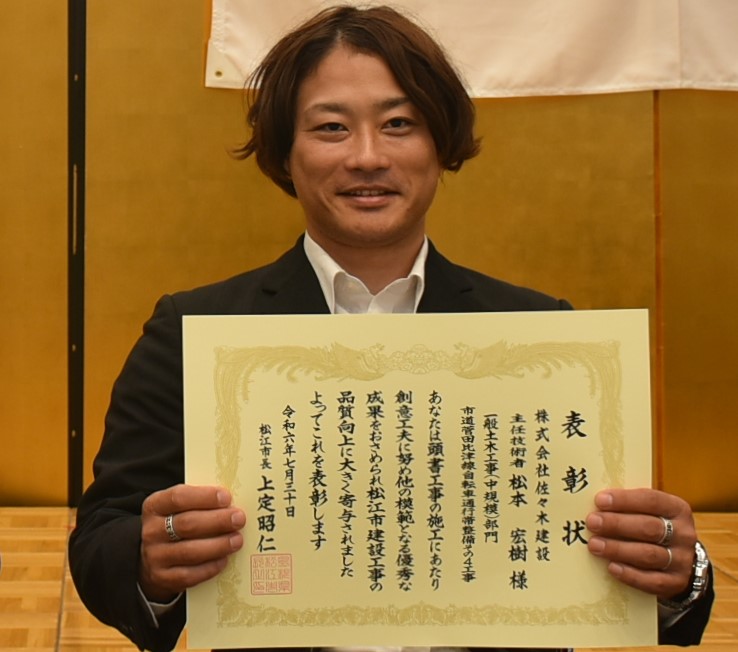 表彰状
株式会社佐々木建設
主任技術者 松本 宏樹 様
一般土木工事(中規模)部門
市道菅田比津線自転車通行帯整備その4工事
あなたは頭書工事の施工にあたり
創意工夫に努め他の模範となる優秀な
成果をおさめられ松江市建設工事の
品質向上に大きく寄与されました
よってこれを表彰します
令和六年七月三十日
松江市長 上定昭仁